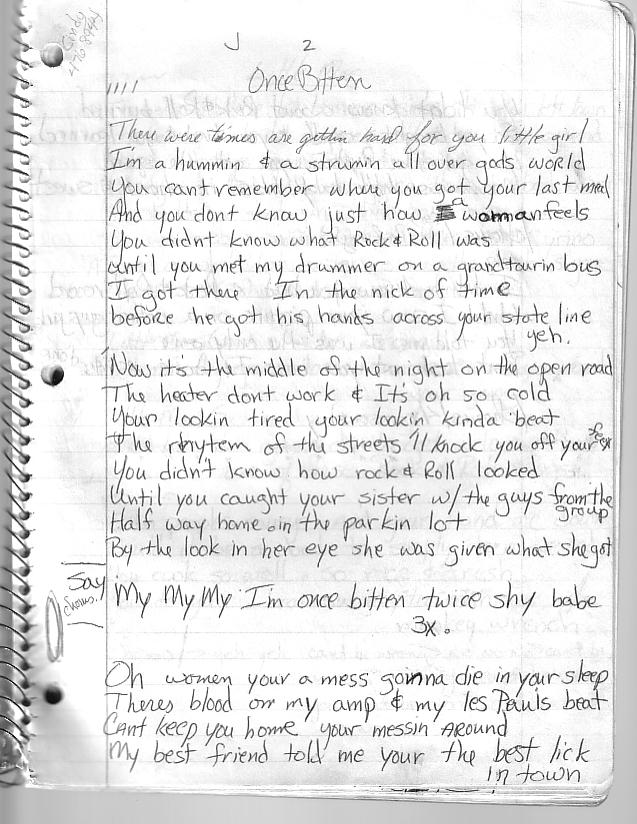 Cindy
J 2
Once Bitten
There were times are gettin hard for you little girl
I'm a hummin & a strumin all over gods world
You cant remember when you got your last meal
And you dont know just how a woman feels
You didnt know what Rock & Roll was
until you met my drummer on a grand tourin bus
I got there In the nick of time
before he got his hands across your state line
yeh.
Now it's the middle of the night on the open road
The heater dont work & It's oh so cold
Your lookin tired your lookin kinda beat
The rhytem of the streets 'll knock you off your feet
You didn't know how rock & Roll looked
Until you caught your sister w/ the guys from the group
Half way home in the parkin lot
By the look in her eye she was given what she got
Say chorus.
My My My I'm once bitten twice shy babe
3x.
Oh women your a mess gonna die in your sleep
Theres blood on my amp & my les Paul's beat
Cant keep you home your messin Around
My best friend told me your the best lick
In town